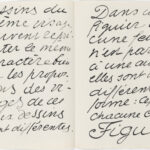 ssins du
même visage
uvent repré
ter le même
ractère bien
les propo
ons des vi-
ges de ces
ers dessins
ent différentes.
Dans u
figuier
cune feu
n'est par
à une au
elles sont
différent
forme: ce
chacune c
Figu